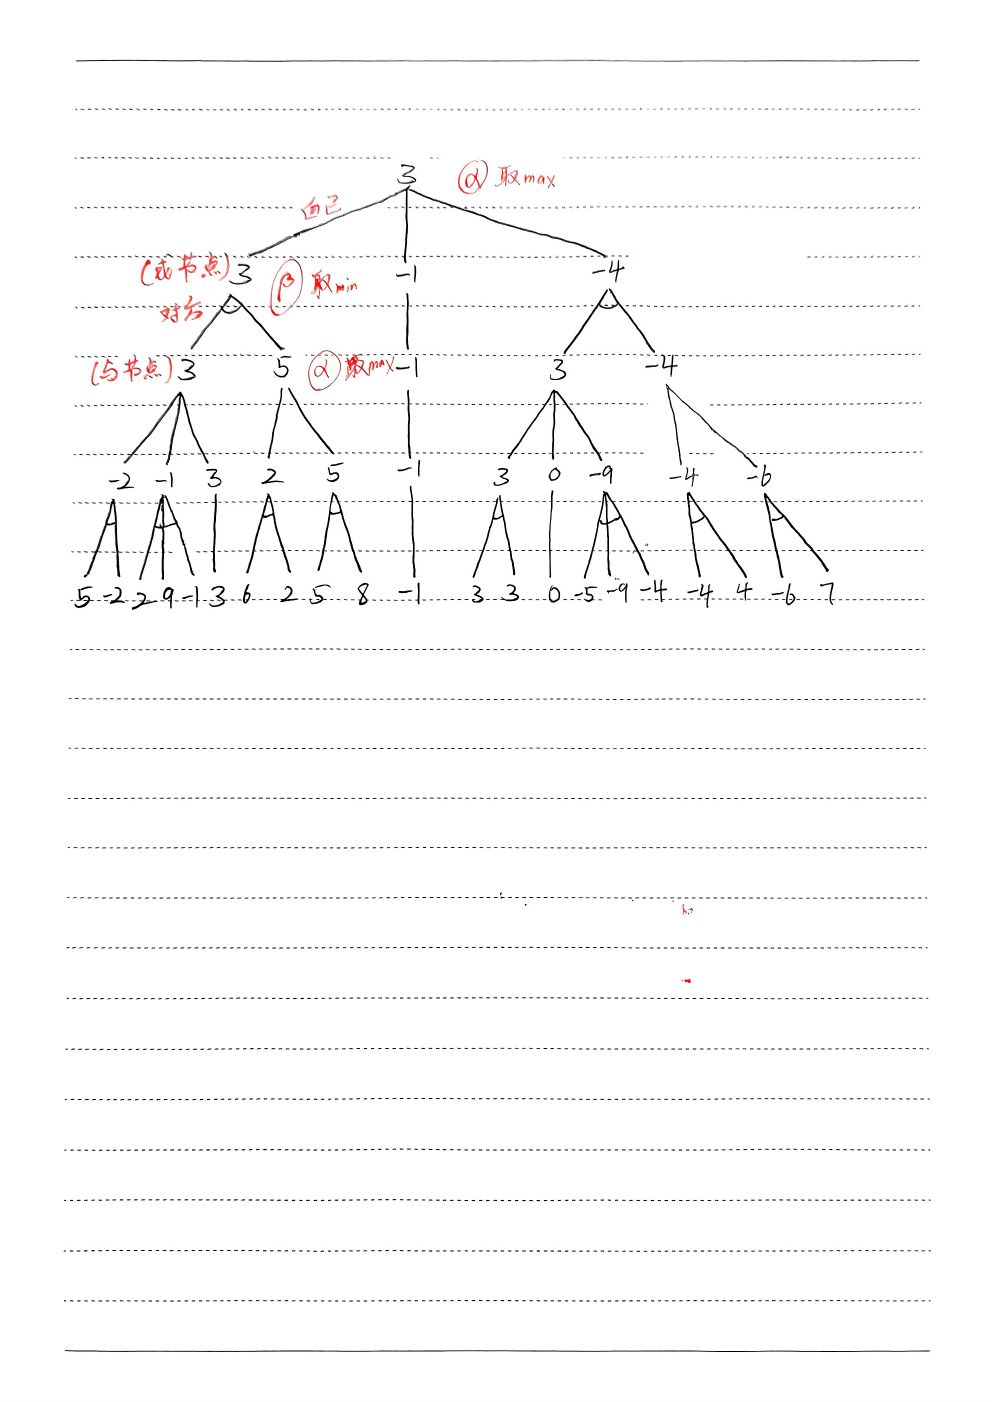 3 α 取max
自己
(或节点) 3 β 取min -1 -4
对方
(与节点) 3 5 α 取max -1 3 -4
-2 -1 3 2 5 -1 3 0 -9 -4 -6
5 -2 2 9 -1 3 6 2 5 8 -1 3 3 0 -5 -9 -4 -4 4 -6 7